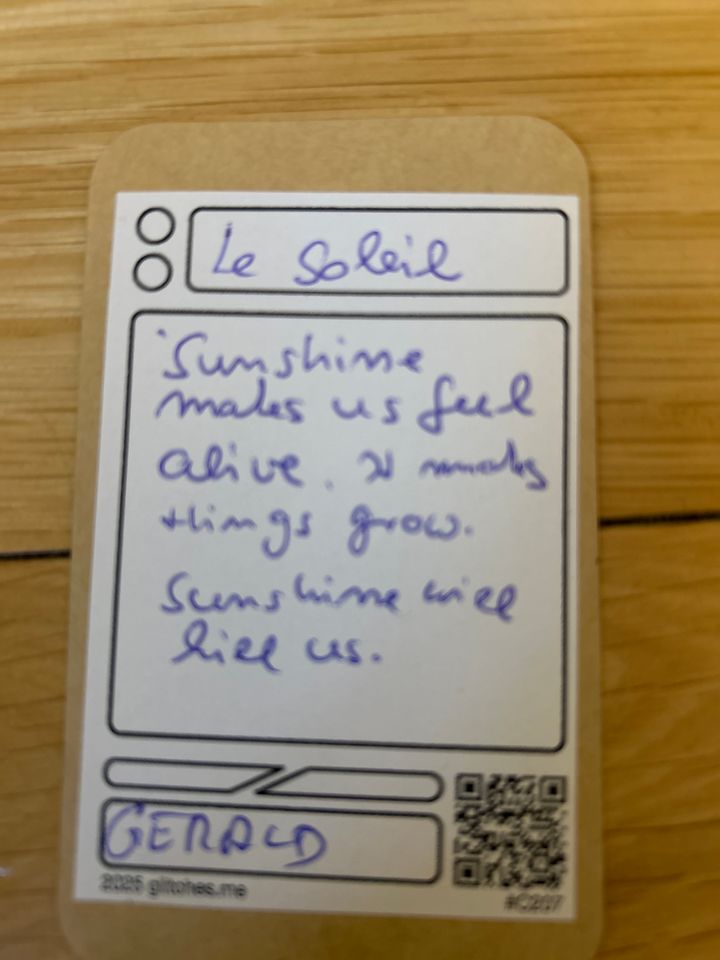 Le Soleil
Sunshine
makes us feel
alive. It makes
things grow.
Sunshine will
kill us.
GERALD
2025 glitches.me
#C207